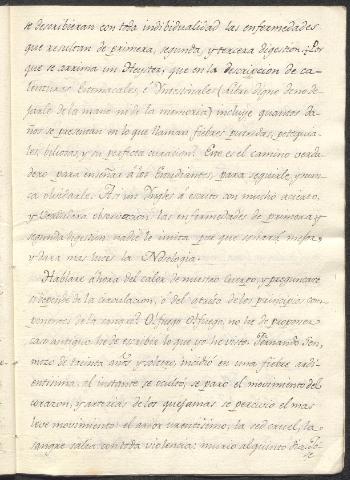 se describieran con toda indibidualidad las enfermedades
que resultan de primera, segunda, y tercera digestion. Por
que se arrima un Heyster, que en la descripcion de ca-
lenturas Estomacales, é Intestinales (Libro digno de no de-
jarle de la mano ni de la memoria) incluye quantos da-
ños se presentan en lo que llaman fiebres putridas,
les, biliosas, y su perfecta curacion? Ese es el camino verda
dero para enseñar á los Estudiantes, para seguirle, y nun-
ca olvidarle. Asi un Ingles á escrito con mucho acierto,
y verdadera observacion las enfermedades de primera, y
segunda digestion: nadie lo imita, por que
y dura mas luces la
Hablare ahora del calor de nuestro Cuerpo, y preguntare
si depende de la circulacion, ó del de los principios com-
ponentes de la sangre? O fuego O fuego, no he de proponer
can antiguo: he de escribir lo que yo he visto. Fernando
mozo de treinta años, y soltero, incidió en una fiebre ardi-
entisima: al instante se ocultó, se paró el movimiento del
corazon, y arterias, de los que jamas se percivió el mas
leve movimiento: el ardor urentisimo, la sed cruel, la
sangre salia con toda violencia: murió al quinto dia: